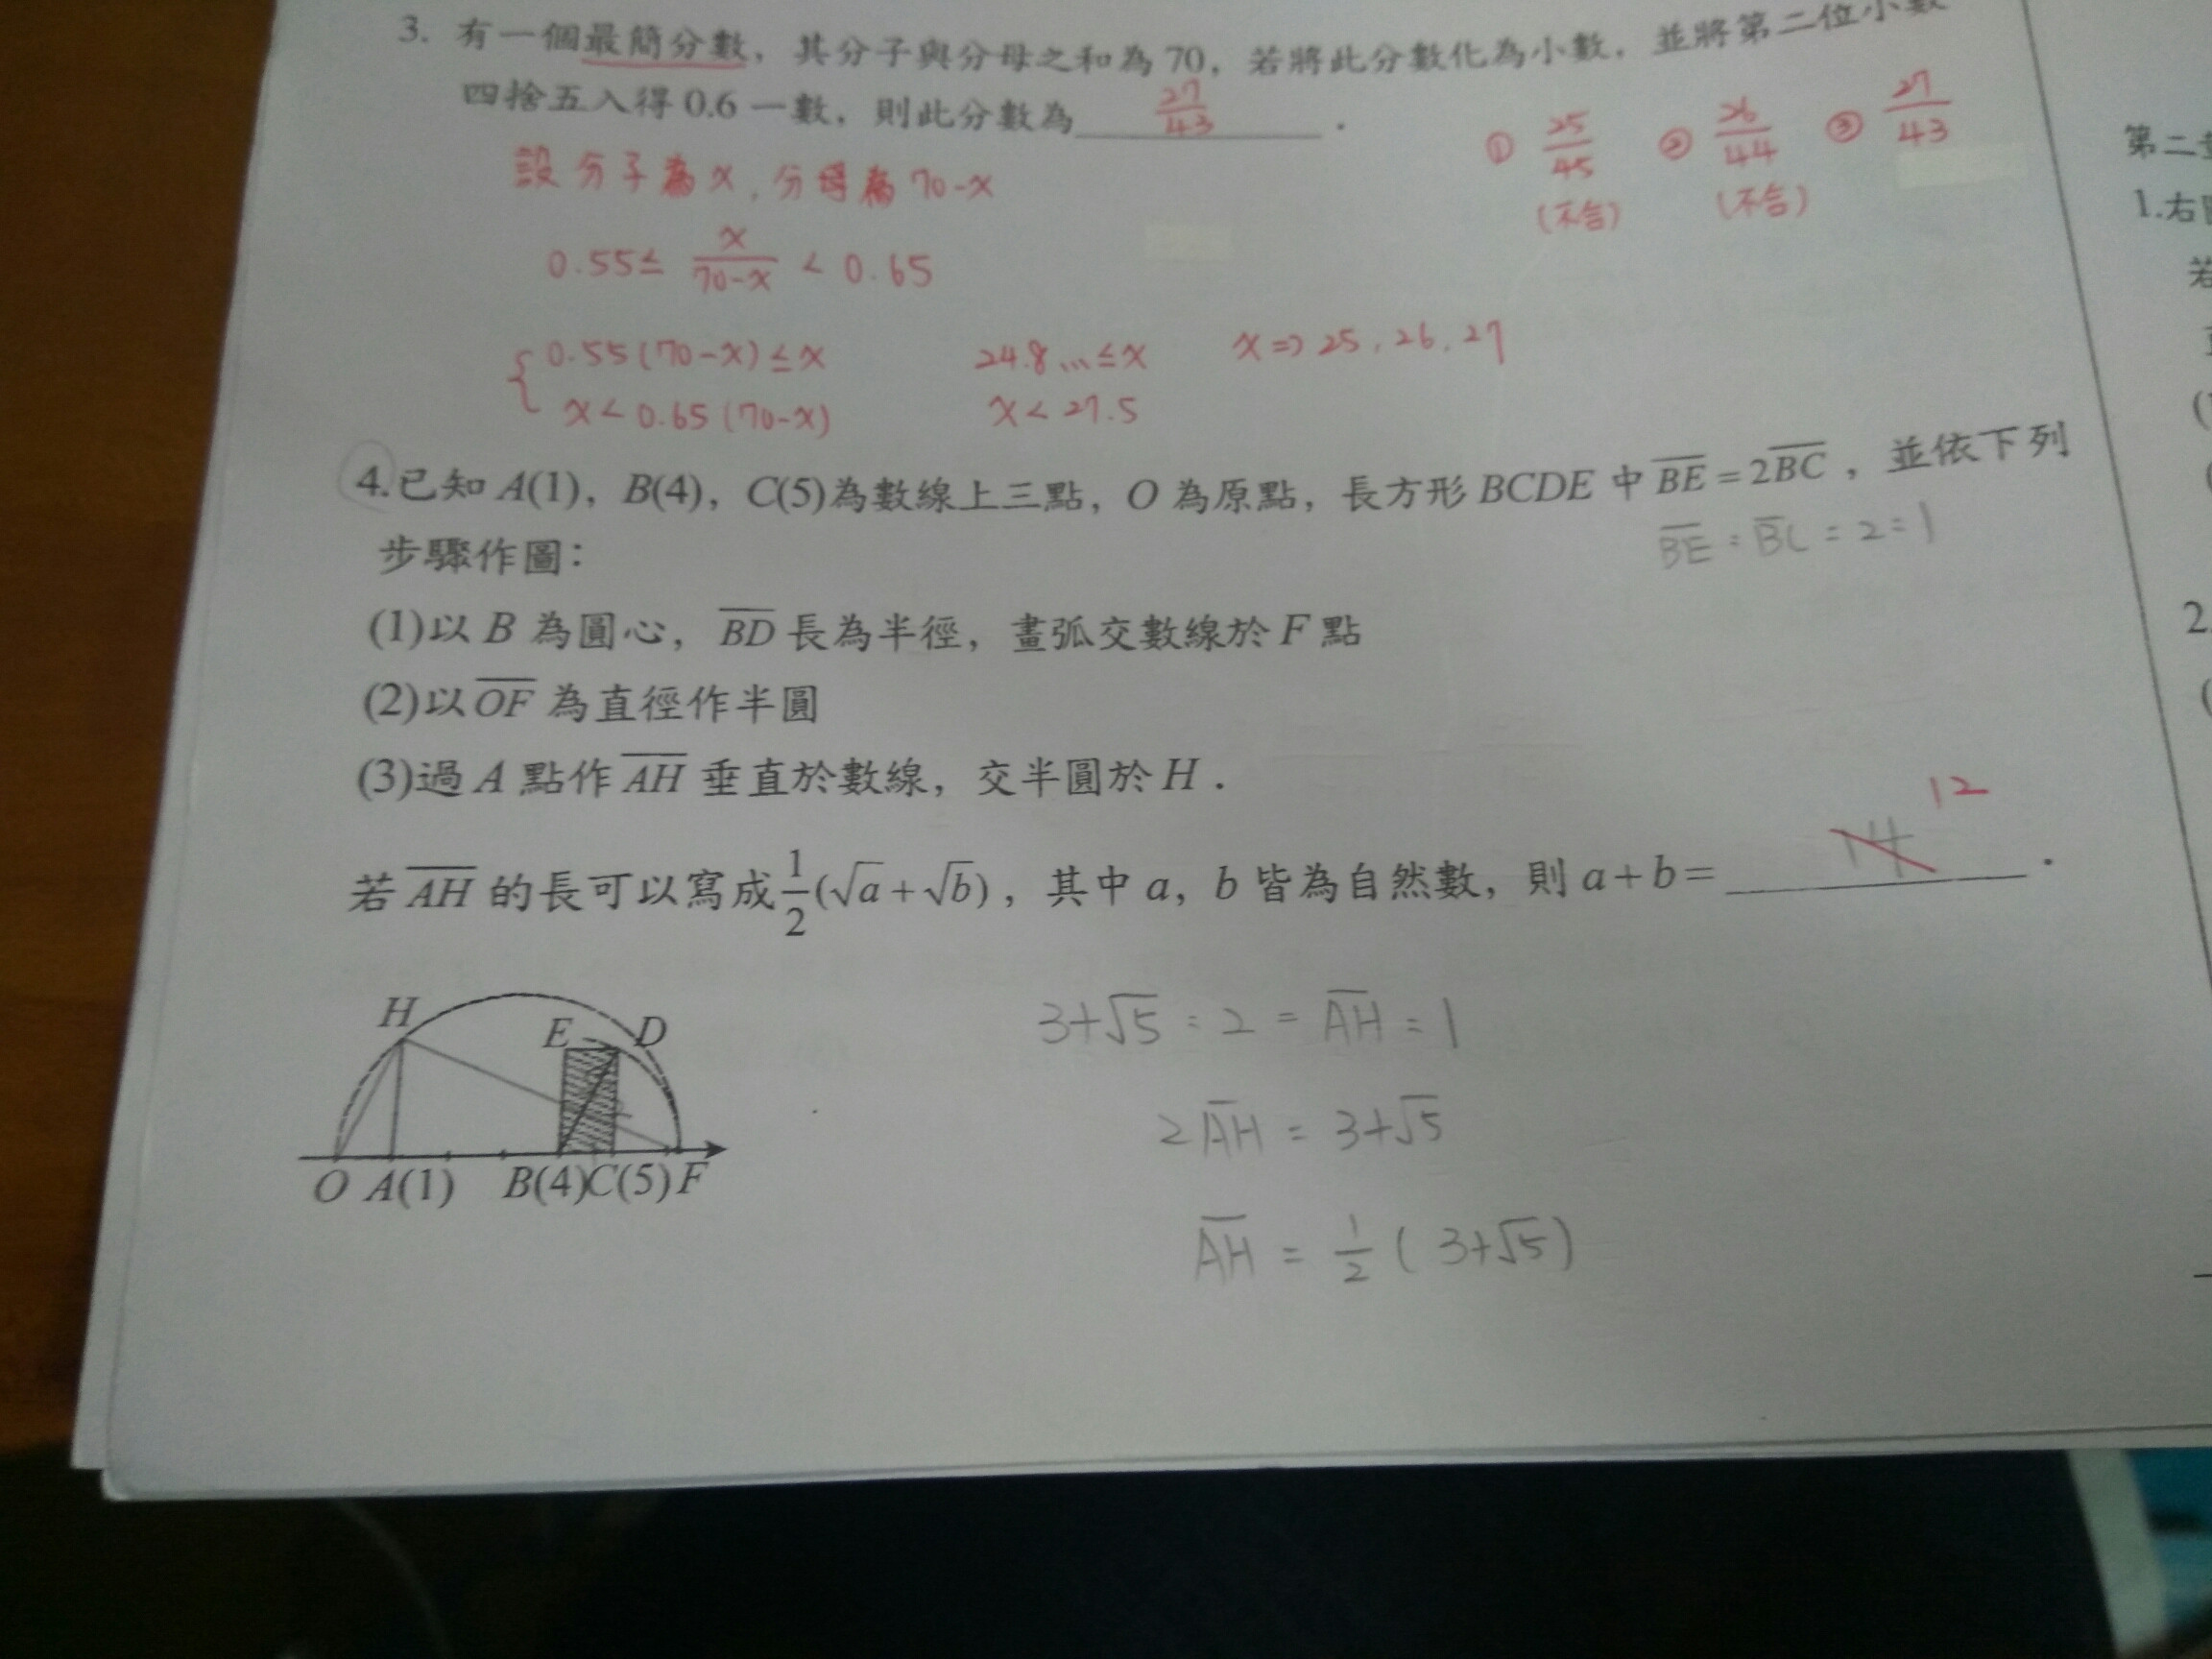 3. 有一個最簡分數，其分子與分母之和為 70，若將此分數化為小數，並將第二位小數
四捨五入得 0.6 一數，則此分數為 27/43．
① 25/45 ② 26/44 ③ 27/43
(不合) (不合)
設分子為 x，分母為 70-x
0.55≤ x/(70-x) < 0.65
0.55(70-x)≤x 24.8...≤x x⇒25, 26, 27
x<0.65(70-x) x<27.5
4.已知 A(1)，B(4)，C(5)為數線上三點，O 為原點，長方形 BCDE 中 BE = 2BC，並依下列
BE : BC = 2 : 1
步驟作圖：
(1)以 B 為圓心，BD 長為半徑，畫弧交數線於 F 點
(2)以 OF 為直徑作半圓
(3)過 A 點作 AH 垂直於數線，交半圓於 H．
若 AH 的長可以寫成 1/2(√a + √b)，其中 a，b 皆為自然數，則 a+b= 14 12．
H E D
O A(1) B(4) C(5) F
3+√5 : 2 = AH : 1
2AH = 3+√5
AH = 1/2 ( 3+√5)
第二
1.右
若
2.